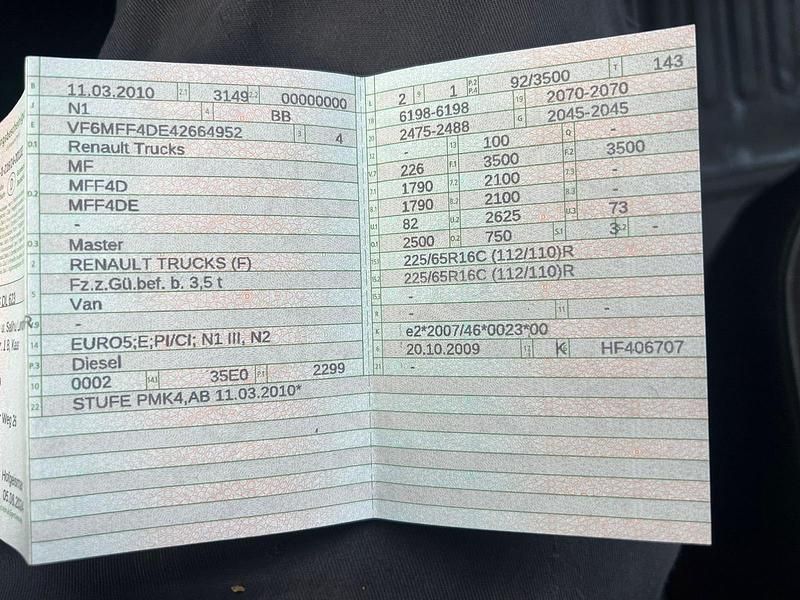 B 11.03.2010 2.1 3149 2.2 00000000
J N1 4 BB
E VF6MFF4DE42664952 3 4
D.1 Renault Trucks
MF
D.2 MFF4D
MFF4DE
-
D.3 Master
2 RENAULT TRUCKS (F)
Fz.z.Gü.bef. b. 3,5 t
5 Van
V.9 -
14 EURO5;E;PI/CI; N1 III, N2
P.3 Diesel
10 0002 14.1 35E0 P.1 2299
22 STUFE PMK4,AB 11.03.2010*
L 2 9 1 P.2 P.4 92/3500 T 143
18 6198-6198 19 2070-2070
20 2475-2488 G 2045-2045
12 - 13 100 Q -
V.7 226 F.1 3500 F.2 3500
7.1 1790 7.2 2100 7.3 -
8.1 1790 8.2 2100 8.3 -
U.1 82 U.2 2625 U.3 73
O.1 2500 O.2 750 S.1 3 S.2 -
15.1 225/65R16C (112/110)R
15.2 225/65R16C (112/110)R
15.3 -
R - 11 -
K e2*2007/46*0023*00
6 20.10.2009 17 K 16 HF406707
21 -
Weg 26